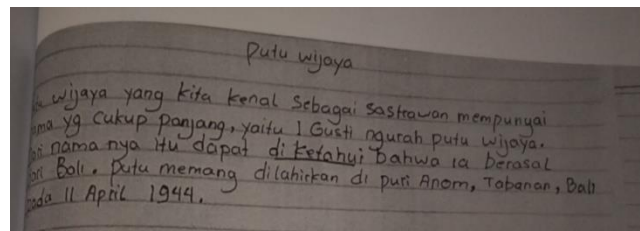 Putu wijaya
wijaya yang kita kenal sebagai sastrawan mempunyai
yg cukup panjang, yaitu I Gusti ngurah putu wijaya.
nama nya itu dapat di ketahui bahwa ia berasal
Bali. Putu memang dilahirkan di puri Anom, Tabanan, Bali
pada 11 April 1944.